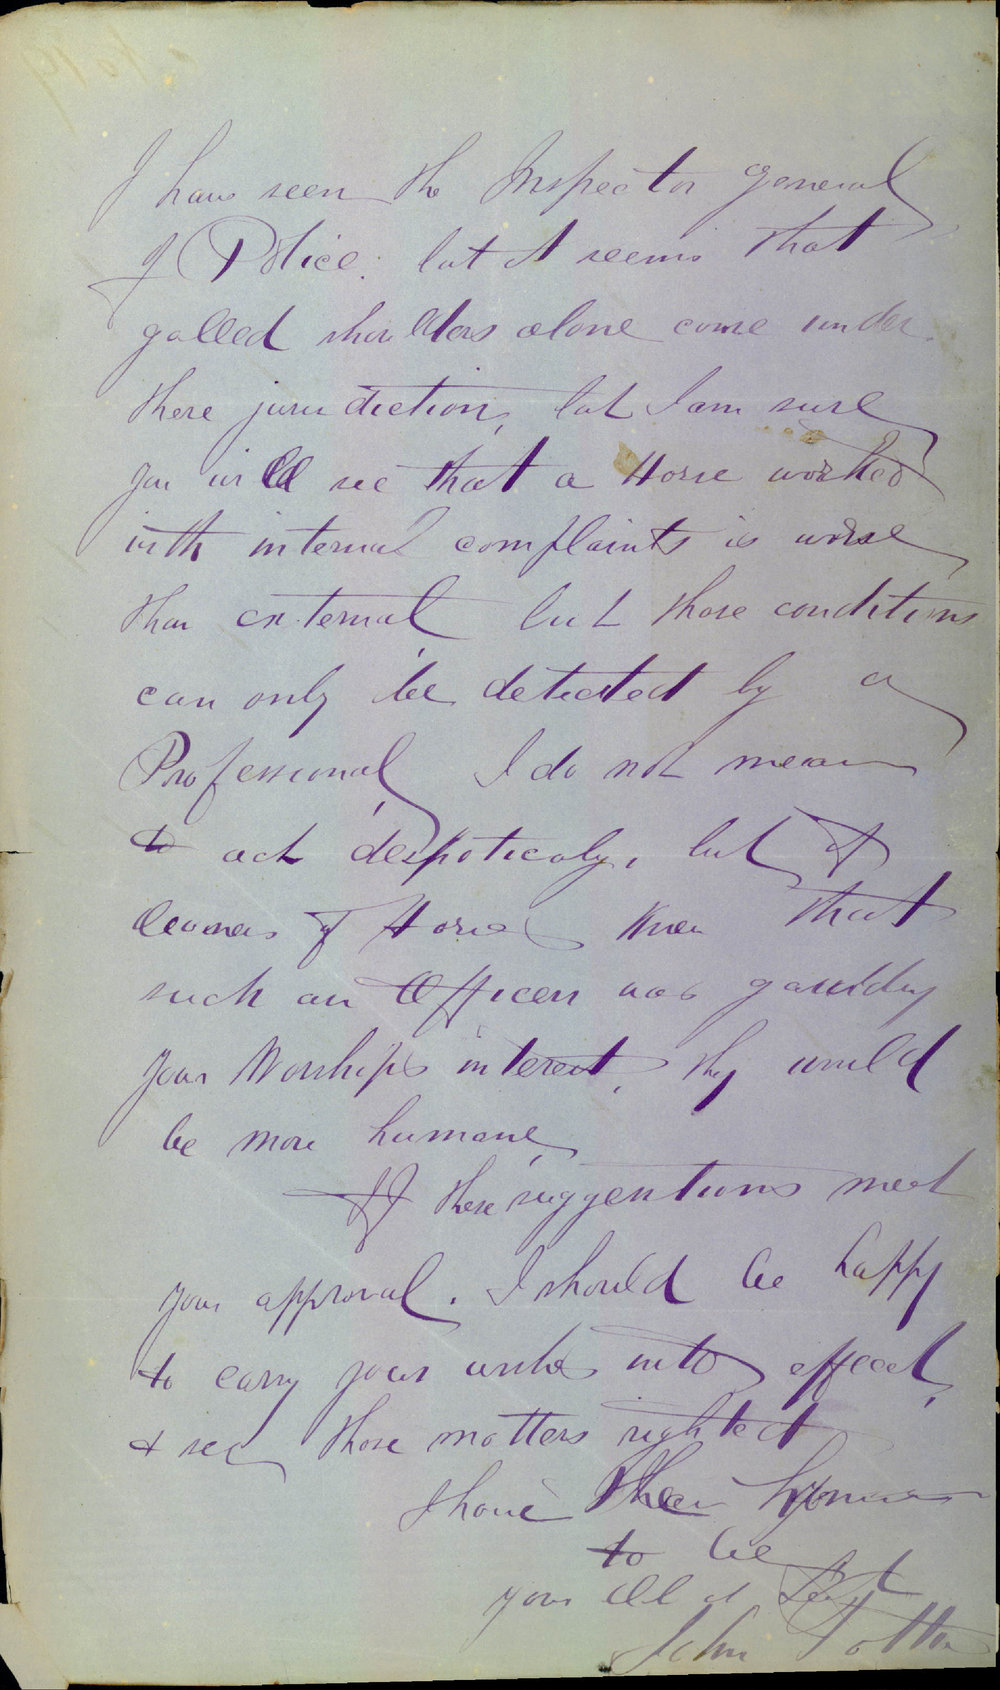 I have seen the Inspector General
of Police: but it seems that
galled shoulders alone come under
there jurisdiction, but I am sure
you will see that a Horse worked
with internal complaints is worse
than external but those conditions
can only be detected by a
Professional, I do not mean
to act despoticaly, but if
owners of Horses knew that
such an Officer was
your Worships interest, they would
be more humane,
If these suggestions meet
your approval. I should be happy
to carry your wishes into effect,
& see those matters righted
I have the
to be
your
John